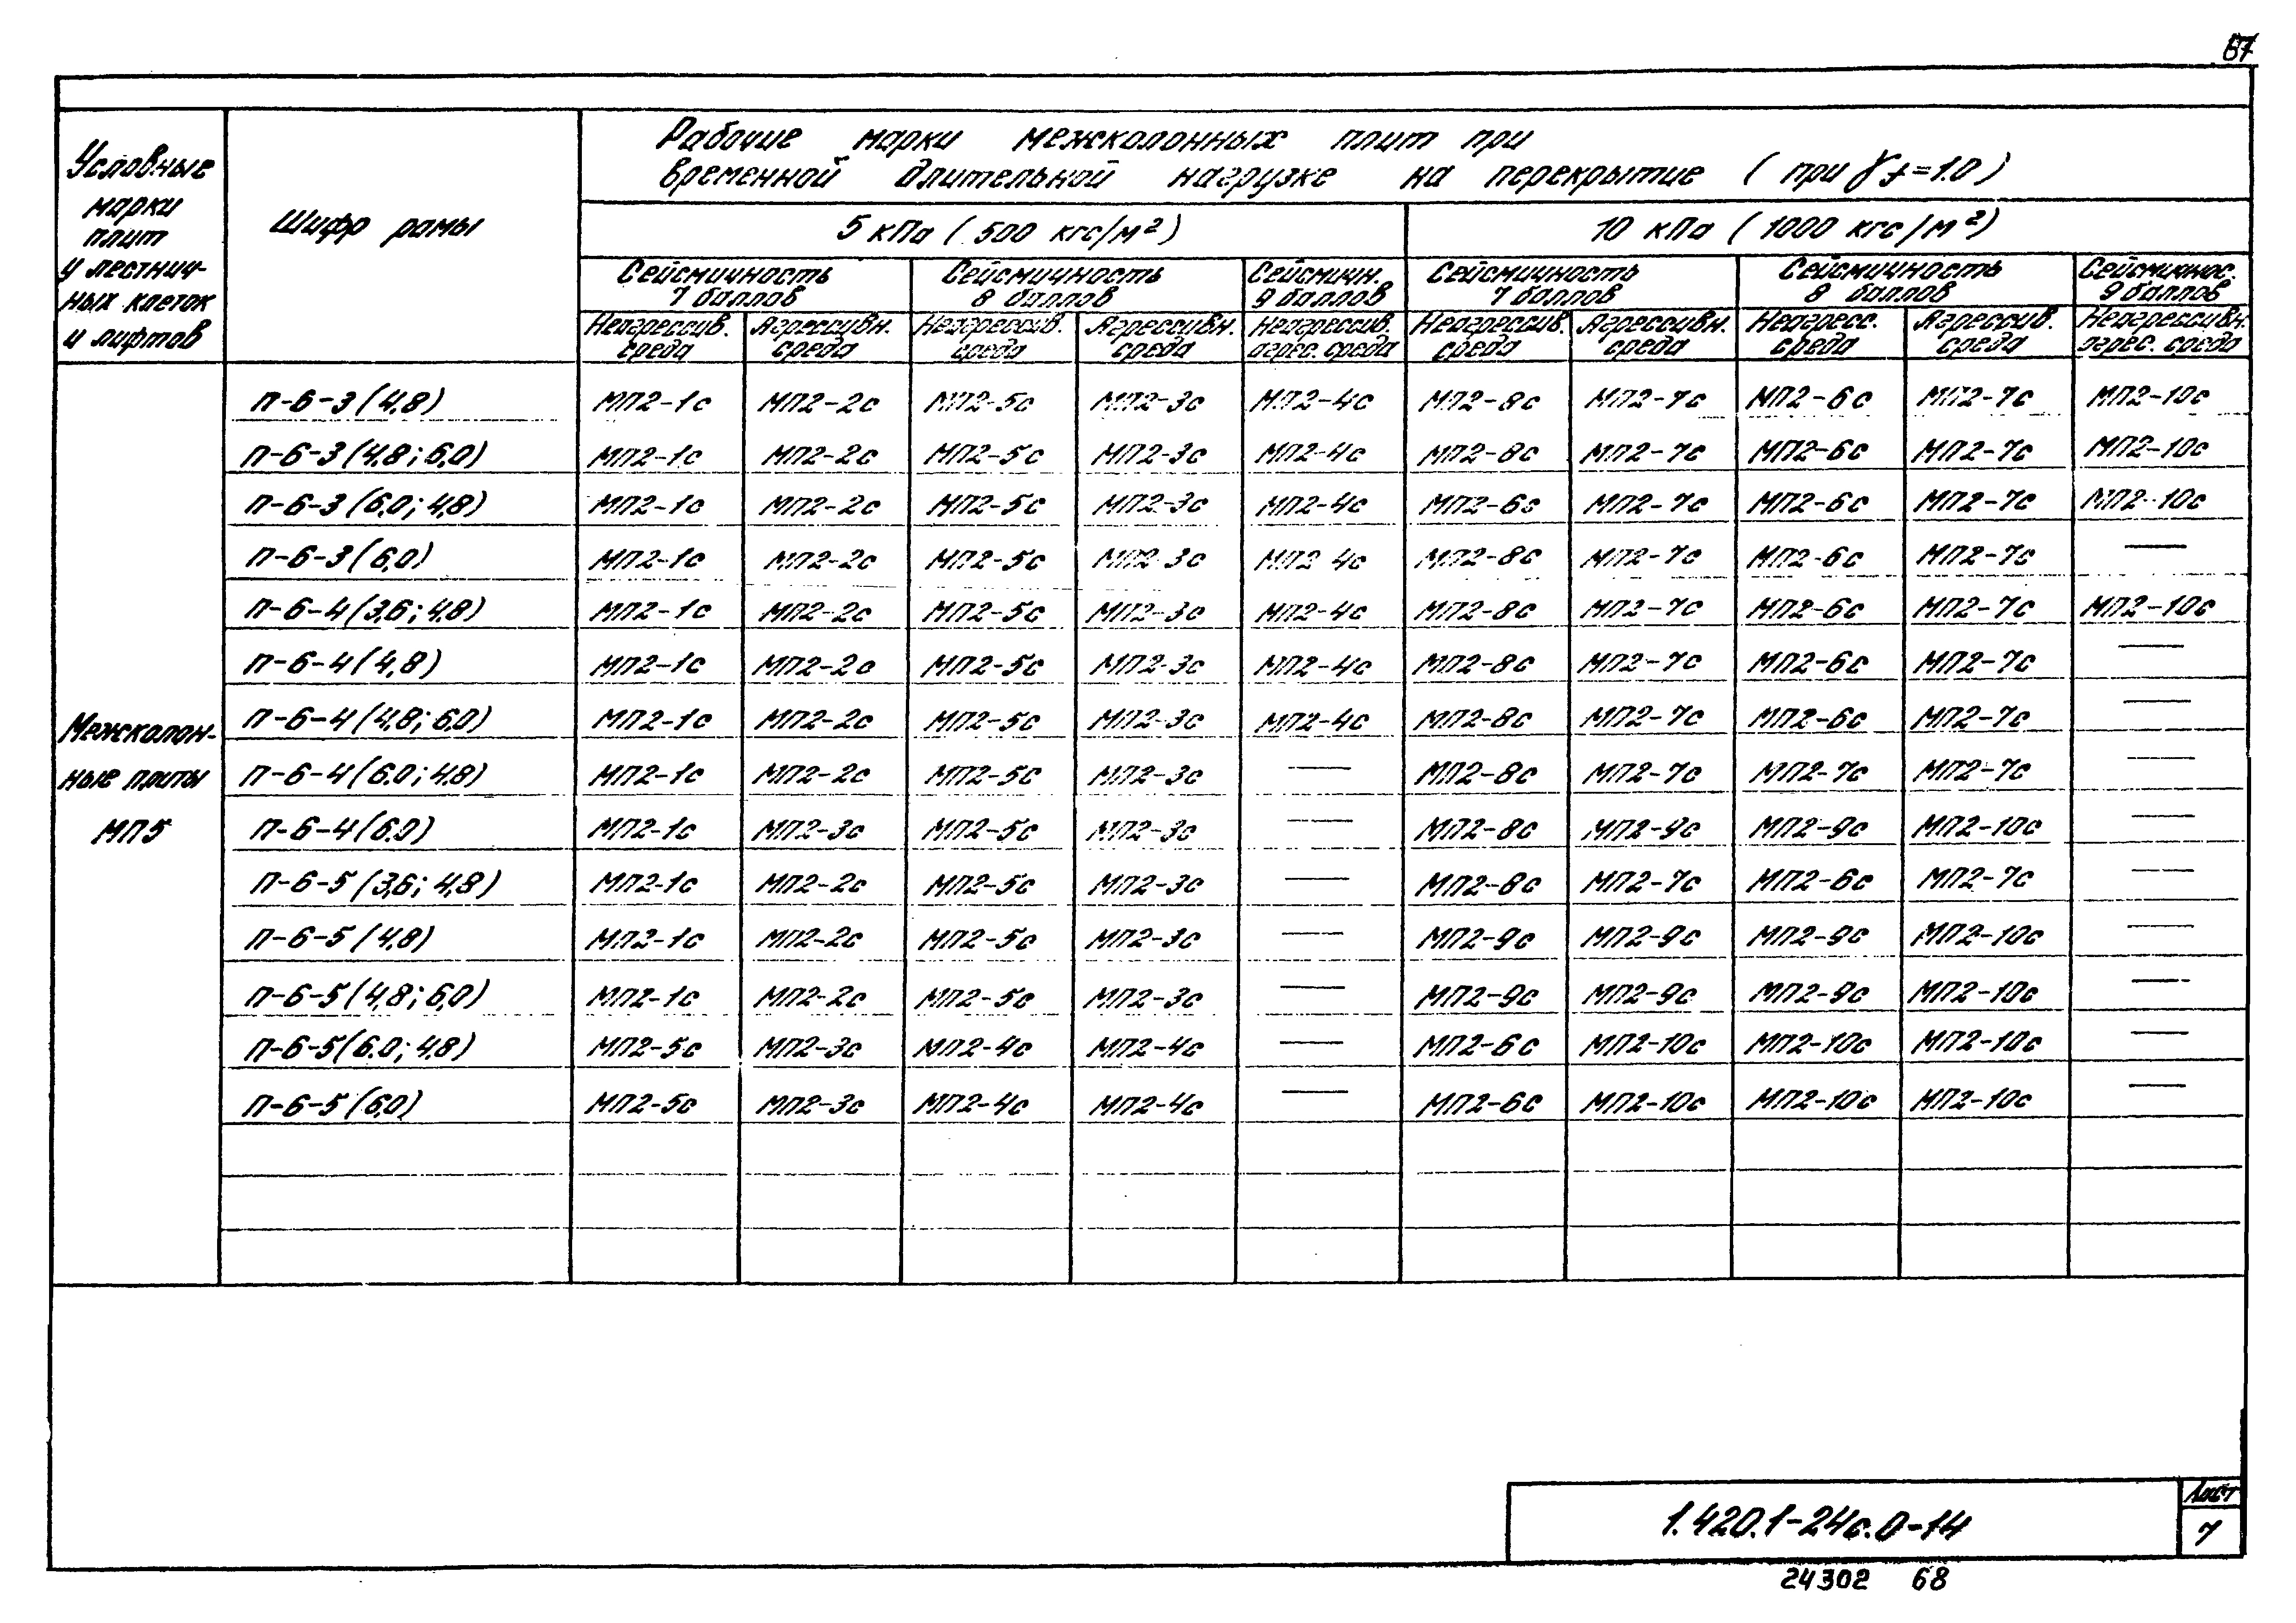 67
Условные
марки
плит
у лестнич-
ных клеток
и лифтов
Шифр рамы
Рабочие марки межколонных плит при
временной длительной нагрузке на перекрытие (при γf=1.0)
5 кПа (500 кгс/м²)
10 кПа (1000 кгс/м²)
Сейсмичность
7 баллов
Сейсмичность
8 баллов
Сейсмичн.
9 баллов
Сейсмичность
7 баллов
Сейсмичность
8 баллов
Сейсмичнос.
9 баллов
Неагрессив.
среда
Агрессивн.
среда
Неагрессив.
среда
Агрессивн.
среда
Неагрессив.
агрес. среда
Неагрессив.
среда
Агрессивн.
среда
Неагресс.
среда
Агрессив.
среда
Неагрессивн.
агрес. среда
Межколон-
ные плиты
МП5
П-6-3(4,8) МП2-1с МП2-2с МП2-5с МП2-3с МП2-4с МП2-8с МП2-7с МП2-6с МП2-7с МП2-10с
П-6-3(4,8;6,0) МП2-1с МП2-2с МП2-5с МП2-3с МП2-4с МП2-8с МП2-7с МП2-6с МП2-7с МП2-10с
П-6-3(6,0;4,8) МП2-1с МП2-2с МП2-5с МП2-3с МП2-4с МП2-6с МП2-7с МП2-6с МП2-7с МП2-10с
П-6-3(6,0) МП2-1с МП2-2с МП2-5с МП2-3с МП2-4с МП2-8с МП2-7с МП2-6с МП2-7с —
П-6-4(3,6;4,8) МП2-1с МП2-2с МП2-5с МП2-3с МП2-4с МП2-8с МП2-7с МП2-6с МП2-7с МП2-10с
П-6-4(4,8) МП2-1с МП2-2с МП2-5с МП2-3с МП2-4с МП2-8с МП2-7с МП2-6с МП2-7с —
П-6-4(4,8;6,0) МП2-1с МП2-2с МП2-5с МП2-3с МП2-4с МП2-8с МП2-7с МП2-6с МП2-7с —
П-6-4(6.0;4,8) МП2-1с МП2-2с МП2-5с МП2-3с — МП2-8с МП2-7с МП2-7с МП2-7с —
П-6-4(6.0) МП2-1с МП2-3с МП2-5с МП2-3с — МП2-8с МП2-9с МП2-9с МП2-10с —
П-6-5(3,6;4,8) МП2-1с МП2-2с МП2-5с МП2-3с — МП2-8с МП2-7с МП2-6с МП2-7с —
П-6-5(4,8) МП2-1с МП2-2с МП2-5с МП2-3с — МП2-9с МП2-9с МП2-9с МП2-10с —
П-6-5(4,8;6,0) МП2-1с МП2-2с МП2-5с МП2-3с — МП2-9с МП2-9с МП2-9с МП2-10с —
П-6-5(6.0;4,8) МП2-5с МП2-3с МП2-4с МП2-4с — МП2-6с МП2-10с МП2-10с МП2-10с —
П-6-5(6,0) МП2-5с МП2-3с МП2-4с МП2-4с — МП2-6с МП2-10с МП2-10с МП2-10с —
1.420.1-24с.0-14
Лист
7
24302 68